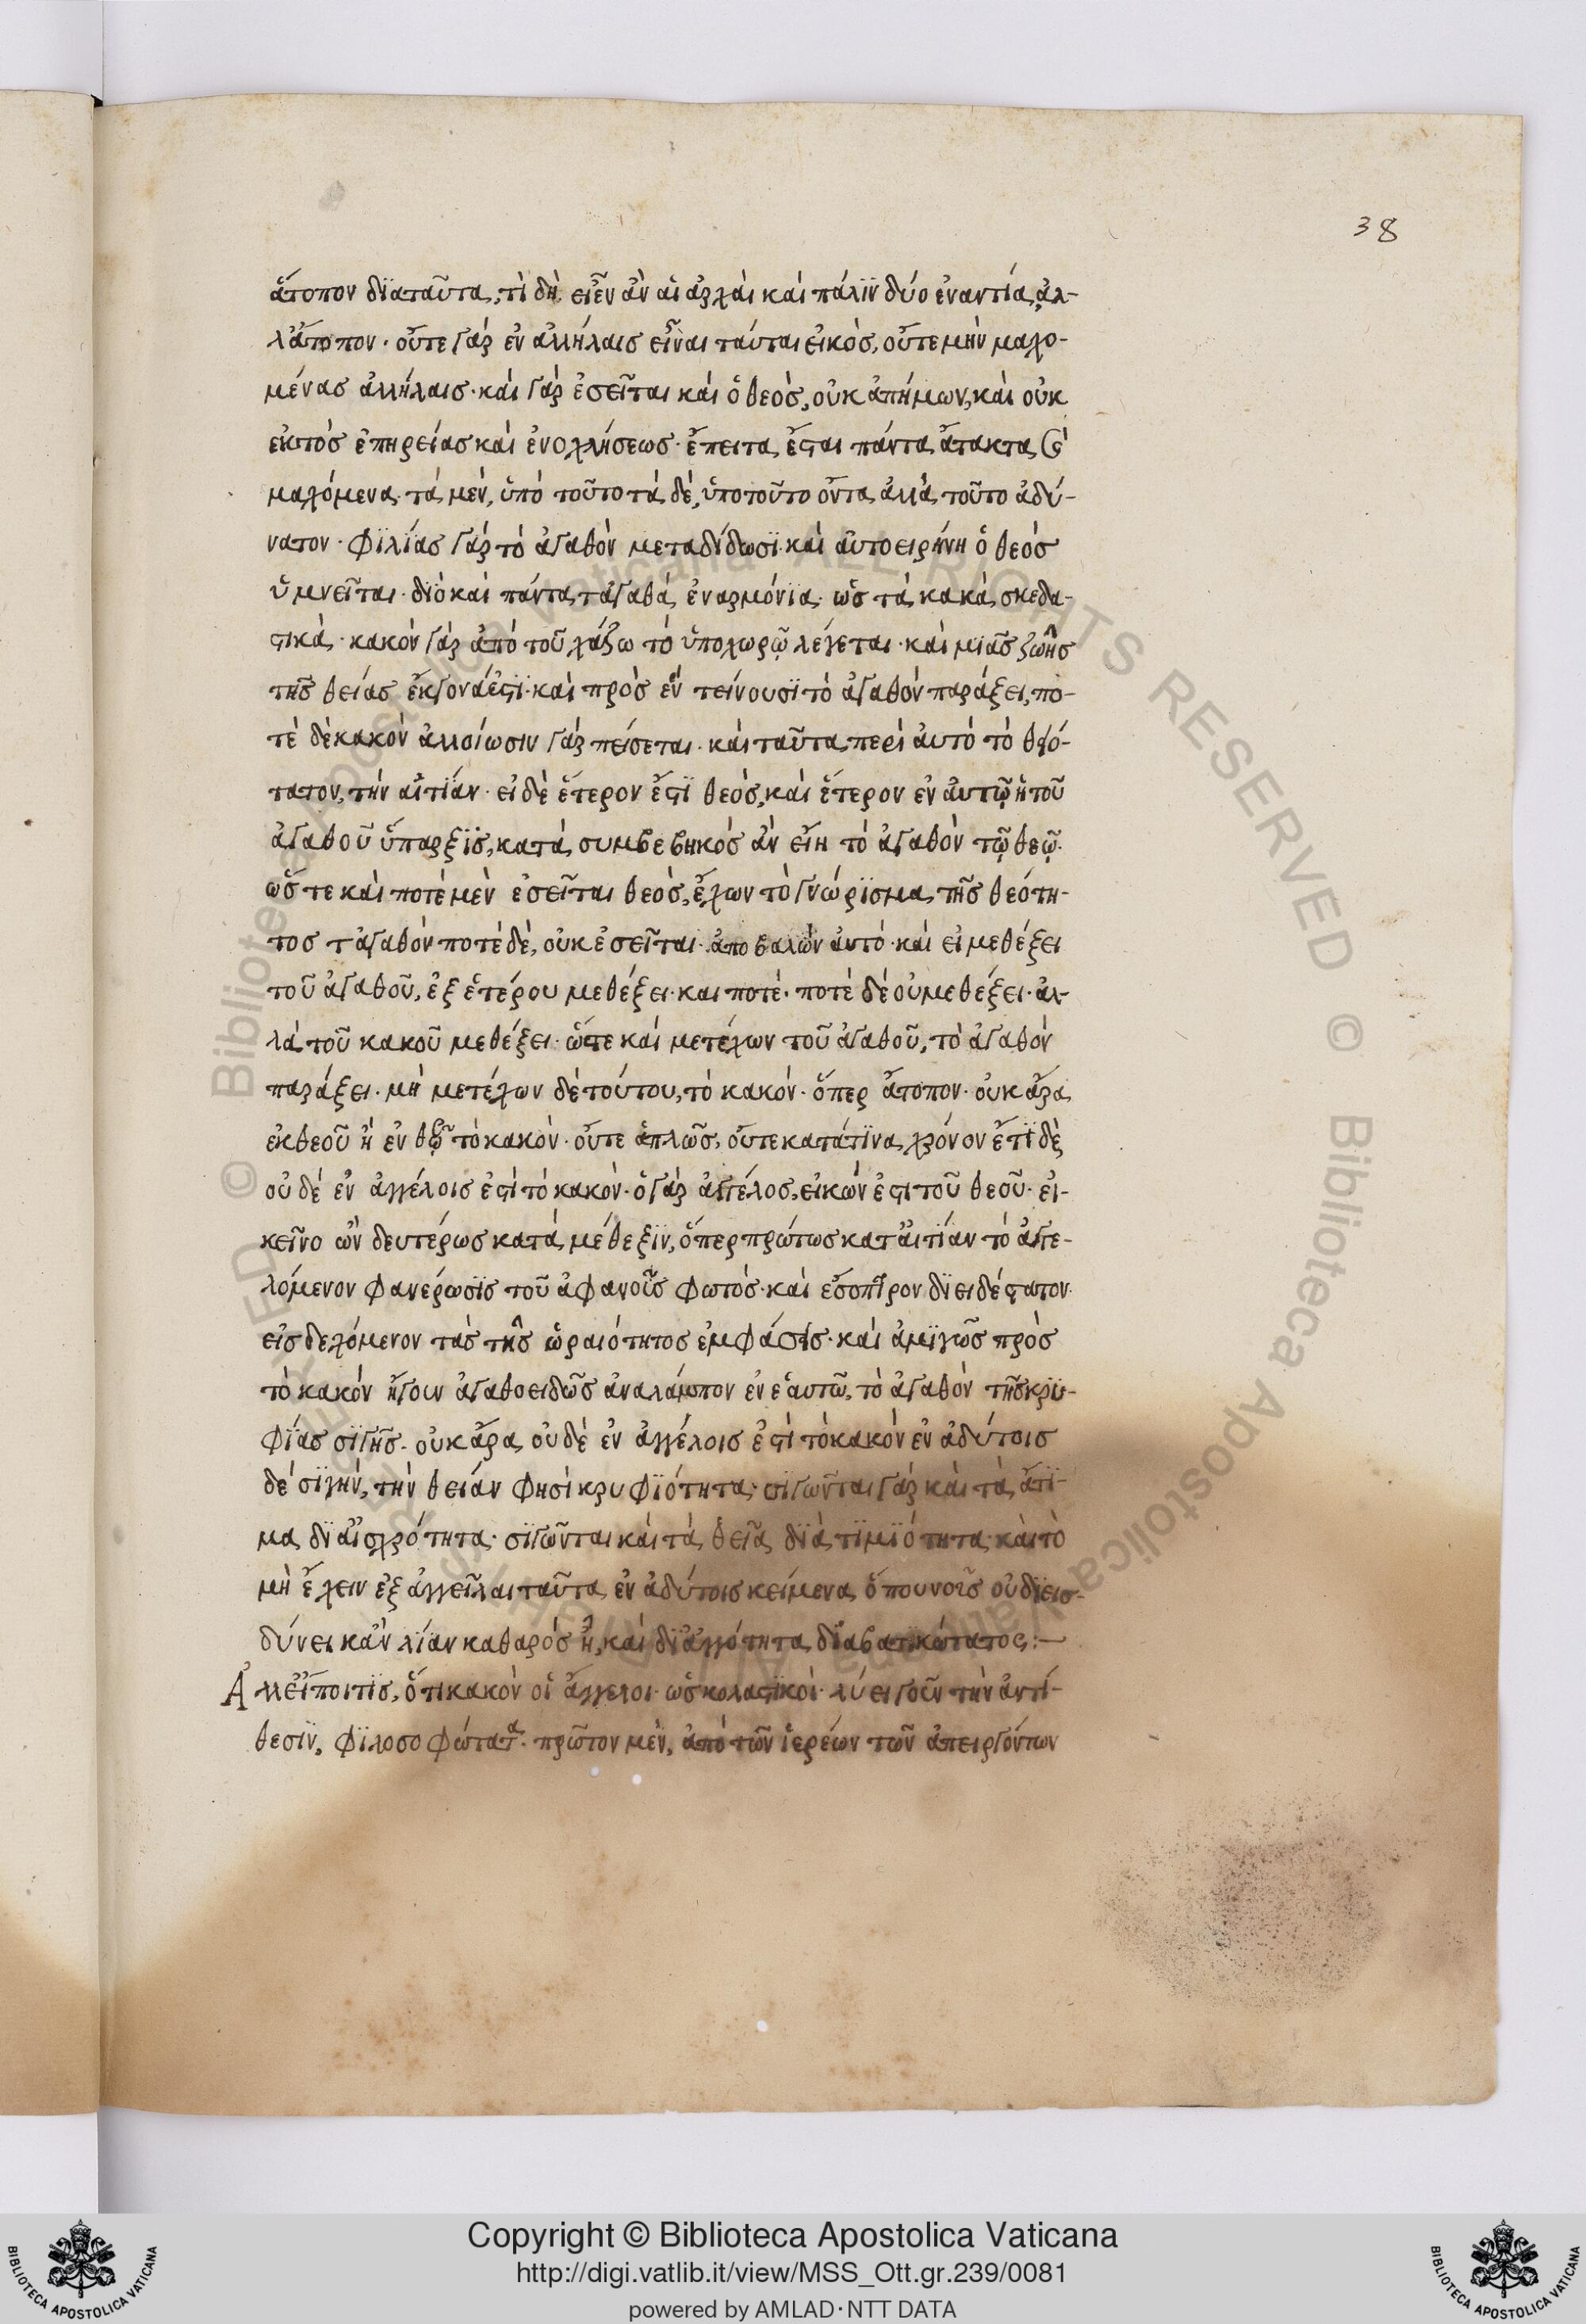 38
ἄτοπον διαταῦτα, τί δὴ εἶεν ἂν αἱ ἀρχαὶ καὶ πάλιν δύο ἐναντία, ἀλ-
λ' ἄτοπον· οὔτε γὰρ ἐν ἀλλήλαις εἶναι ταύται εἰκὸς, οὔτε μὴν μαχο-
μένας ἀλλήλαις· καὶ γὰρ ἐσεῖται καὶ ὁ θεὸς, οὐκ ἀπήμων, καὶ οὐκ
ἐκτὸς ἐπηρείας καὶ ἐνοχλήσεως· ἔπειτα ἔσται πάντα ἄτακτα καὶ
μαχόμενα· τὰ μὲν, ὑπὸ τοῦτο τὰ δὲ, ὑποτοῦτο ὄντα ἀλλὰ τοῦτο ἀδύ-
νατον· φιλίας γὰρ τὸ ἀγαθὸν μεταδίδωσι· καὶ αὐτοειρήνη ὁ θεὸς
ὑμνεῖται· διὸ καὶ πάντα τἀγαθὰ ἐναρμόνια· ὡς τὰ κακὰ σκεδα-
στικὰ· κακὸν γὰρ ἀπὸ τοῦ χάζω τὸ ὑποχωρῶ λέγεται· καὶ μιᾶς ζωῆς
τῆς θείας ἔκγονά ἐστι· καὶ πρὸς ἓν τείνουσι τὸ ἀγαθὸν παράξει, πο-
τὲ δὲ κακὸν ἀλλοίωσιν γὰρ πείσεται· καὶ ταῦτα περὶ αὐτὸ τὸ θειό-
τατον, τὴν αἰτίαν· εἰ δὲ ἕτερον ἔστι θεὸς, καὶ ἕτερον ἐν αὐτῷ ἡ τοῦ
ἀγαθοῦ ὕπαρξις, κατὰ συμβεβηκὸς ἂν εἴη τὸ ἀγαθὸν τῷ θεῷ·
ὥστε καὶ ποτὲ μὲν ἐσεῖται θεὸς, ἔχων τὸ γνώρισμα τῆς θεότη-
τος τἀγαθὸν ποτὲ δὲ, οὐκ ἐσεῖται· ἀποβαλὼν αὐτό· καὶ εἰ μεθέξει
τοῦ ἀγαθοῦ, ἐξ ἑτέρου μεθέξει· και ποτὲ· ποτὲ δὲ οὐ μεθέξει· ἀλ-
λὰ τοῦ κακοῦ μεθέξει· ὥστε καὶ μετέχων τοῦ ἀγαθοῦ, τὸ ἀγαθὸν
παράξει· μὴ μετέχων δὲ τούτου, τὸ κακὸν· ὅπερ ἄτοπον· οὐκ ἄρα
ἐκ θεοῦ ἢ ἐν θεῷ τὸ κακὸν· οὔτε ἁπλῶς, οὔτε κατάτινα χρόνον ἔτι δὲ
οὐ δὲ ἐν ἀγγέλοις ἐστὶ τὸ κακὸν· ὁ γὰρ ἄγγελος, εἰκών ἐστι τοῦ θεοῦ· ἐ-
κεῖνο ὢν δευτέρως κατὰ μέθεξιν, ὅπερ πρώτως κατ' αἰτίαν τὸ ἀγγε-
λόμενον φανέρωσις τοῦ ἀφανοῦς φωτὸς· καὶ ἔσοπτρον διειδέστατον
εἰσδεχόμενον τὰς τῆς ὡραιότητος ἐμφάσεις· καὶ ἀμιγῶς πρὸς
τὸ κακὸν ἤγουν ἀγαθοειδῶς ἀναλάμπον ἐν ἑαυτῷ, τὸ ἀγαθὸν τῆς κρυ-
φίας σιγῆς· οὐκ ἄρα οὐ δὲ ἐν ἀγγέλοις ἐστὶ τὸ κακὸν ἐν ἀδύτοις
δὲ σιγὴν, τὴν θείαν φησὶ κρυφιότητα· σιγῶνται γὰρ καὶ τὰ ἄτι-
μα δι' αἰσχρότητα· σιγῶνται καὶ τὰ θεῖα διὰ τιμιότητα· καὶ τὸ
μὴ ἔχειν ἐξ ἀγγεῖλαι ταῦτα ἐν ἀδύτοις κείμενα ὅπου νοῦς οὐ διεισ-
δύνει κἂν λίαν καθαρὸς ᾖ, καὶ δι' ἀγγότητα διαβατικώτατος:—
Ἀλλ' εἴποι τις, ὅτι κακὸν οἱ ἄγγελοι· ὡς κολαστικοὶ· λύει γοῦν τὴν ἀντί-
θεσιν, φιλοσοφώτατα· πρῶτον μὲν, ἀπὸ τῶν ἱερέων τῶν ἀπειργόντων
Copyright © Biblioteca Apostolica Vaticana
http://digi.vatlib.it/view/MSS_Ott.gr.239/0081
powered by AMLAD·NTT DATA